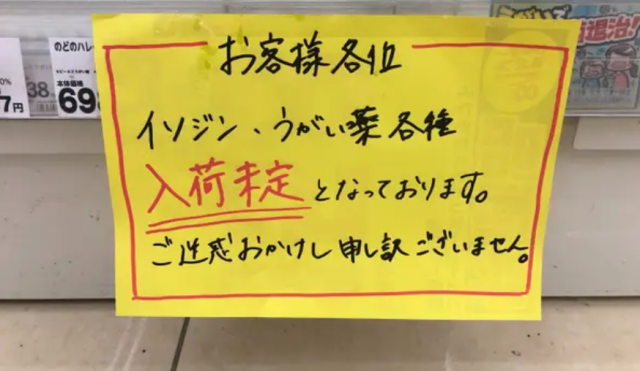 お客様各位
イソジン、うがい薬各種
入荷未定となっております。
ご迷惑おかけし申し訳ございません。
のどのハレ
本体価格
69
38
7円
退治!